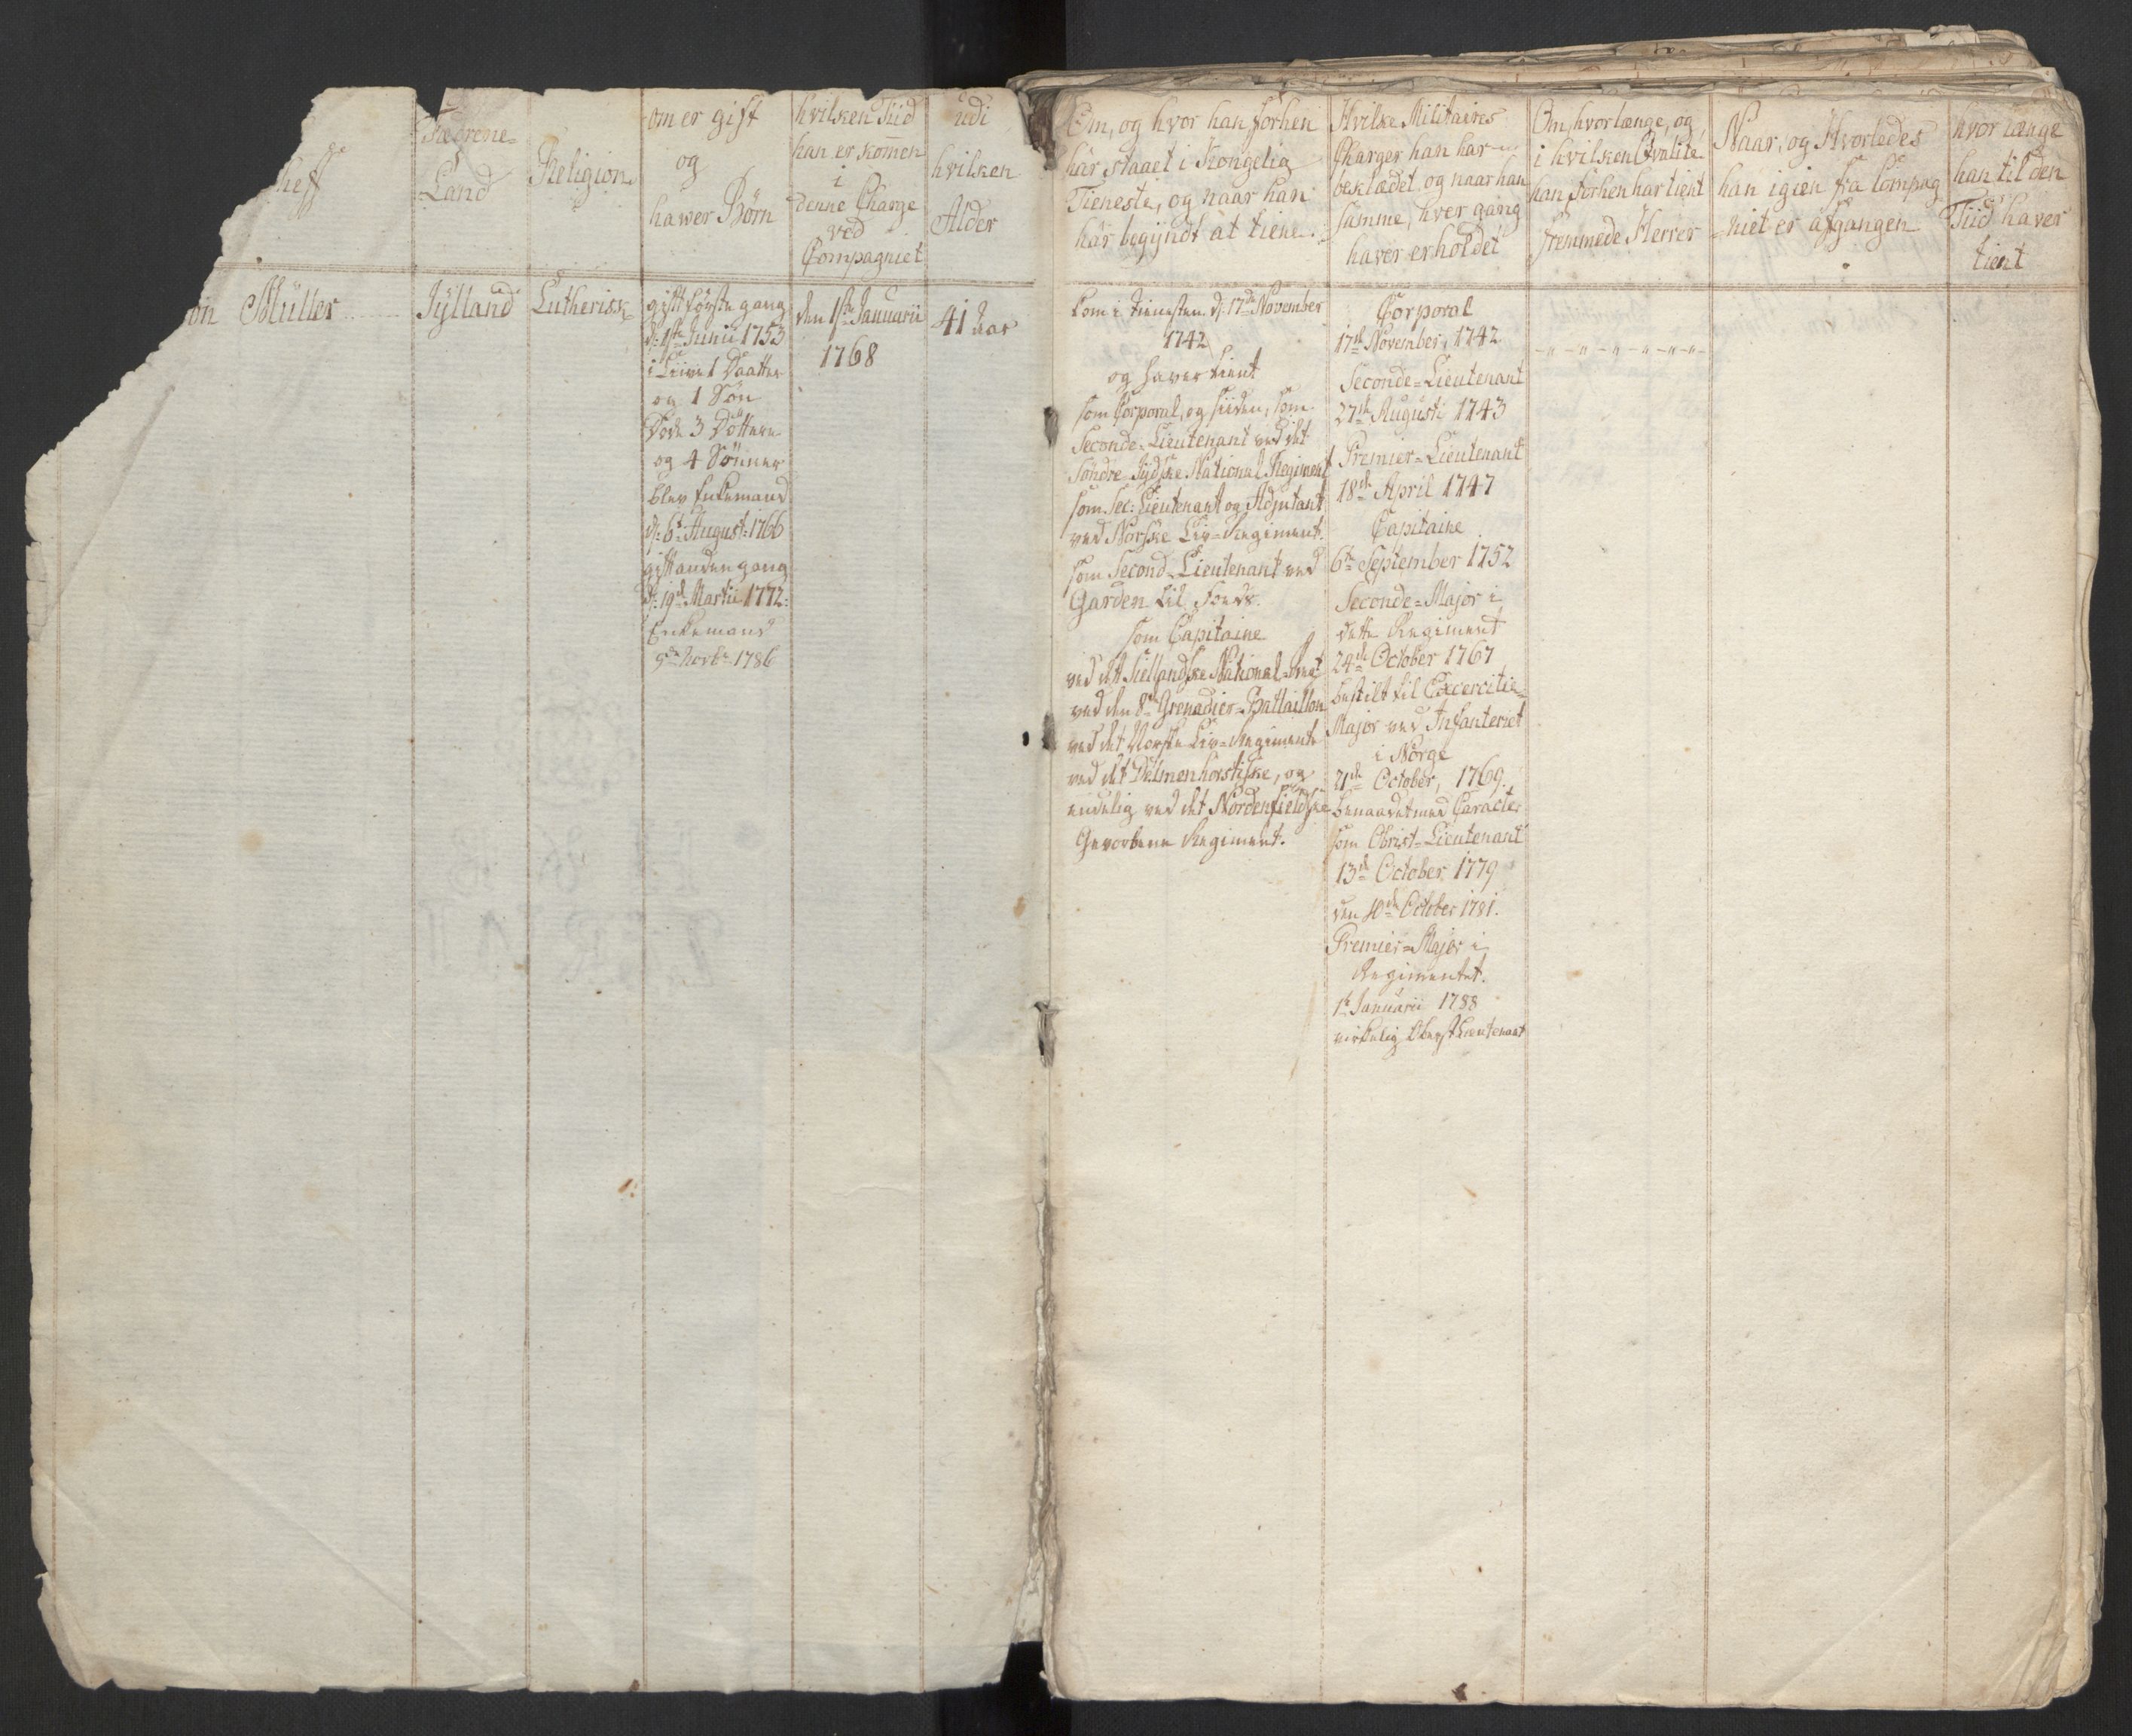 heff
Fædrene-
Land
Religion
om er gift
og
hawer Børn
hvilken Tiid
han er kom̅en
i
denne Charge
ved
Compagniet
udi
hvilken
Alder
on Müller
Jÿlland
Lutherisk
gift første gang
d: 1ste Junii 1753
i Live 1 Daatter
og 1 Søn
Døde 3 Døttere
og 4 Sønner
blev Enkemand
d: 6t August: 1766
gift anden gang
d: 19de Martii 1772:
Enkemand
9de Novbr 1786
den 1ste Januarii
1768
41 Aar
Om, og hvor han forhen
har staaet i Kongelig
Tieneste, og naar han
har begÿndt at tiene.
Hvilke Militaires
Charger han har
beklædet, og naar han
samme, hver gang
haver erholdet
Om, hvorlænge, og
i hvilken Qvalite
han forhen har tient
fremmede Herrer
Naar, og Hvorledes
han igien fra Compag
niet er afgangen
hvor længe
han til den
Tiid haver
tient
kom i tienesten d: 17de November
1742
og haver tient
som Corporal, og siiden, som
Seconde-Lieutenant ved det
Søndre Jÿdske National Regiment
som Sec: Lieutenant og Adjutant
ved Norske Liv-Regiment.
som Second-Lieutenant ved
Garden til Foeds.
som Capitaine
ved det Siellandske National-Regt
ved den 8de Grenadier-Battaillon
ved det Norske Liv-Regimente
ved det Delmenhorstiske, og
endelig ved det Nordenfieldske
Gevorbene Regiment.
Corporal
17de November, 1742
Seconde-Lieutenant
27de Augusti 1743
Premier-Lieutenant
18de April 1747
Capitaine
6te September 1752
Seconde-Major i
dette Regiment
24de October 1767
bestilt til Excercitie-
Major ved Infanteriet
i Norge
21de October, 1769.
benaadet med Caracter
som Obrist-Lieutenant
13de October 1779
den 10de October 1781.
Premier-Major i
Regimentet.
1te Januarii 1788
virkelig Oberstlieutenant